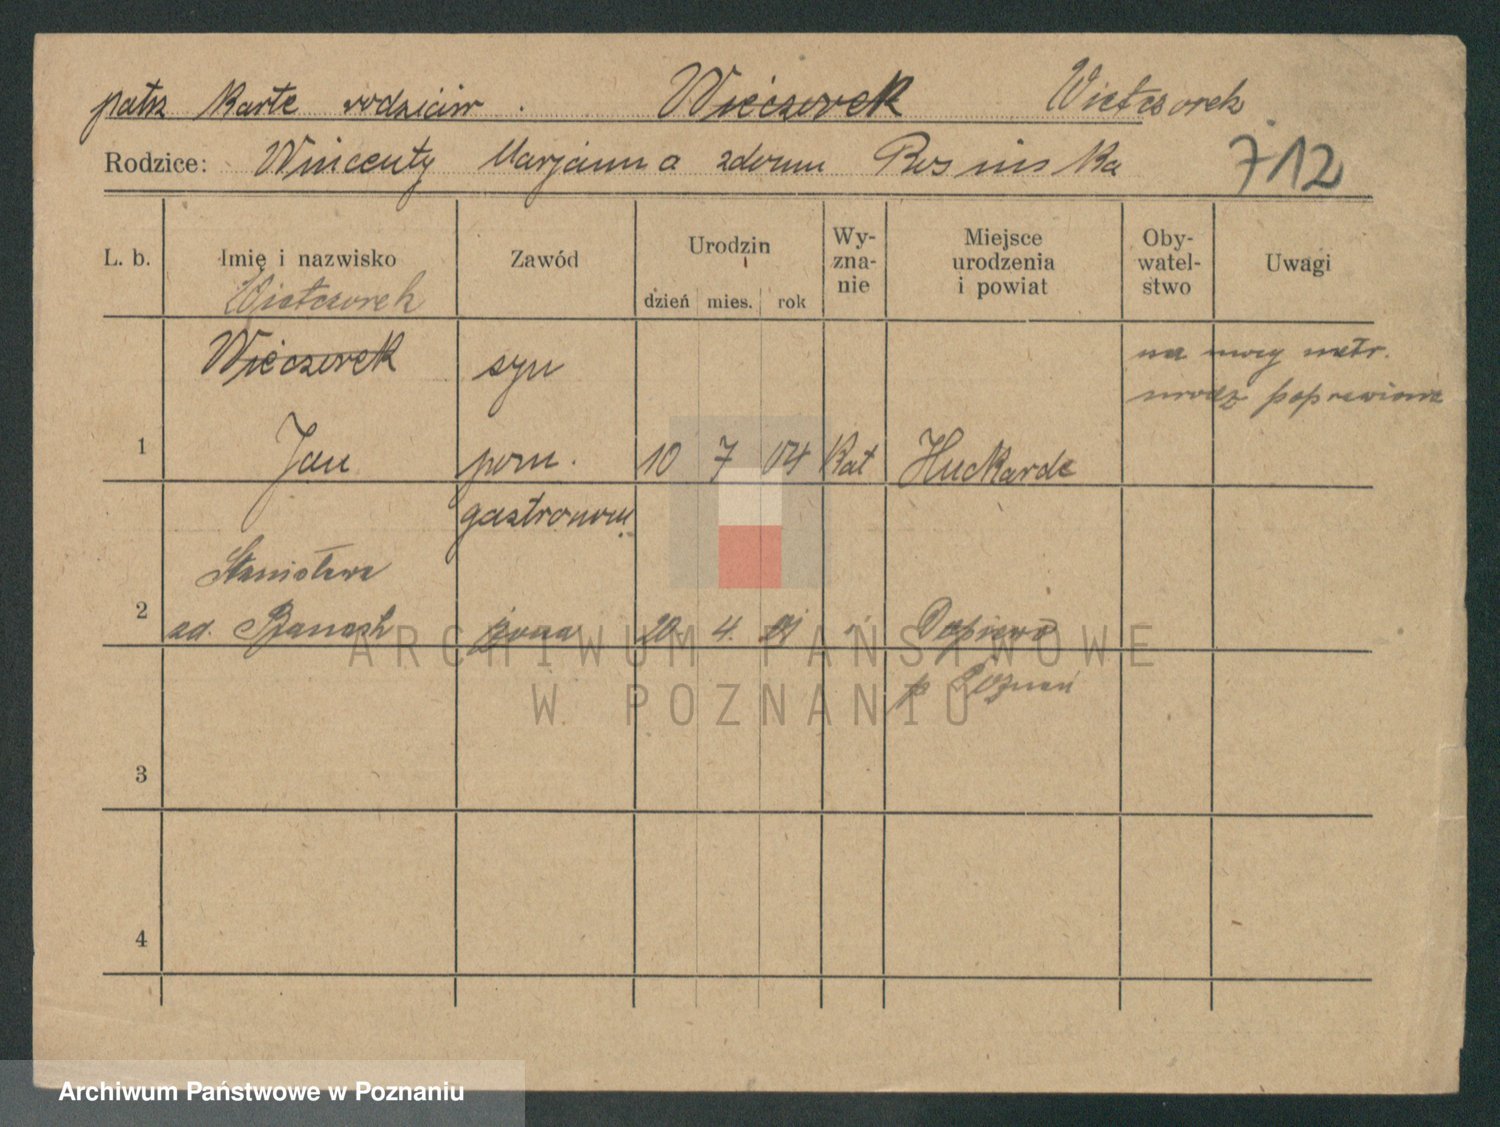 patrz kartę rodziców. Wieczorek Wietczorek
Rodzice: Wincenty Marjanna zdomu Rosinska
712
L. b. Imię i nazwisko Zawód Urodzin dzień mies. rok Wy-zna-nie Miejsce urodzenia i powiat Oby-watel-stwo Uwagi
Wietczorek
Wieczorek syn
na mocy metr.
urodz poprawiono
1 Jan pom. 10 7 04 Kat Huckarde
gastronom.
Stanisława
2 zd. Banach żona 20. 4. Dopiewo
p Poznań
3
4
ARCHIWUM PAŃSTWOWE
W POZNANIU
Archiwum Państwowe w Poznaniu